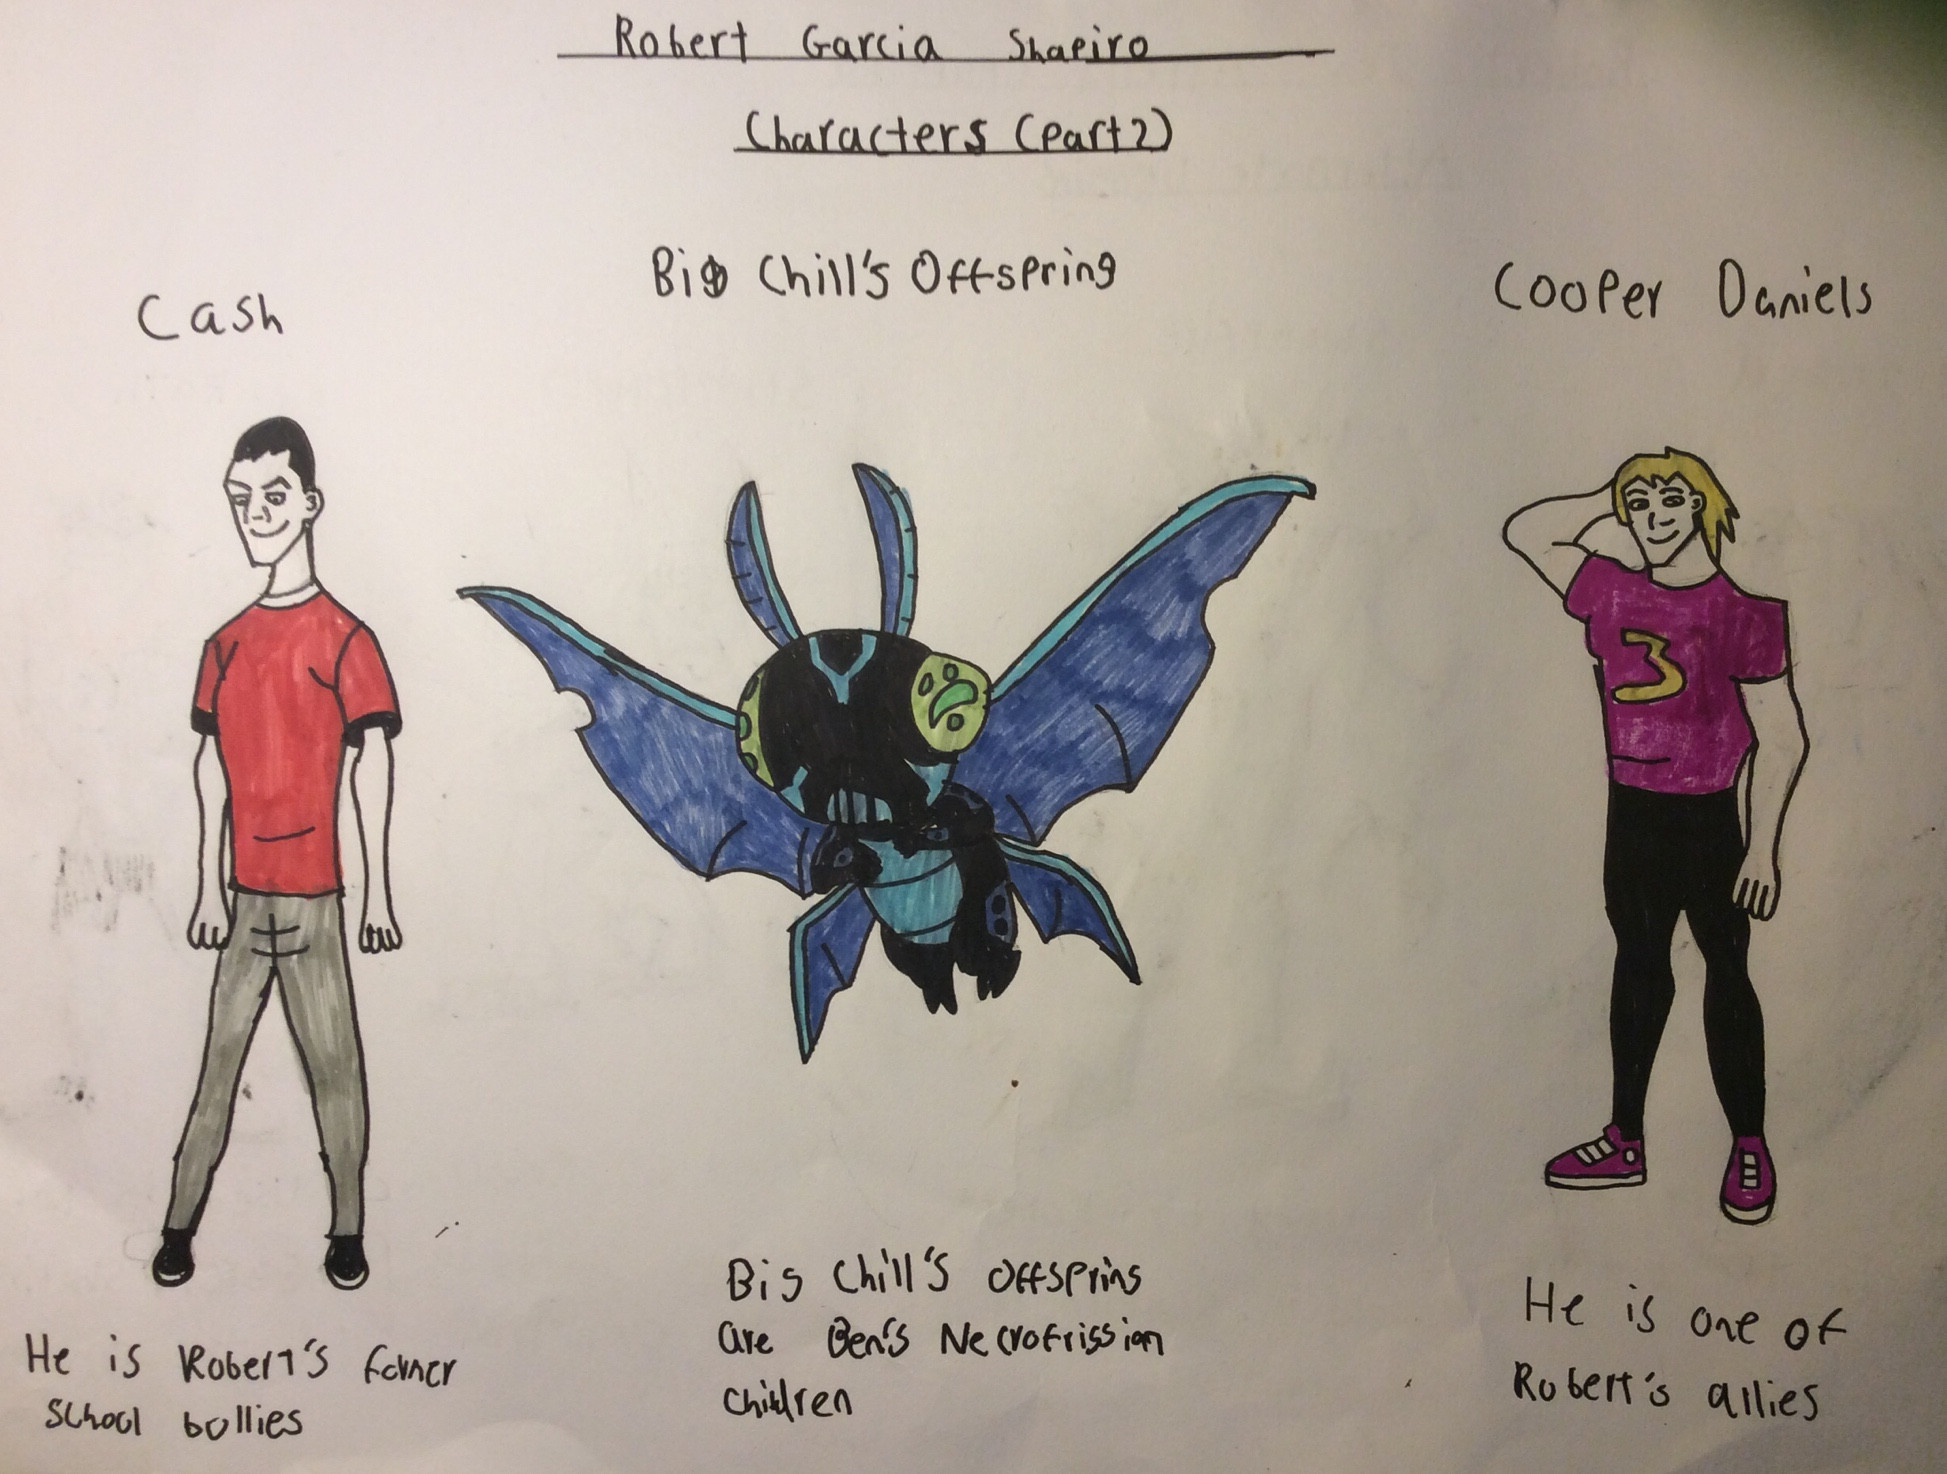 Robert Garcia Shapiro
Characters (Part 2)
Cash
Big Chill's Offspring
Cooper Daniels
3
He is Robert's former
school bullies
Big Chill's Offspring
are Ben's Necrofrission
children
He is one of
Robert's allies